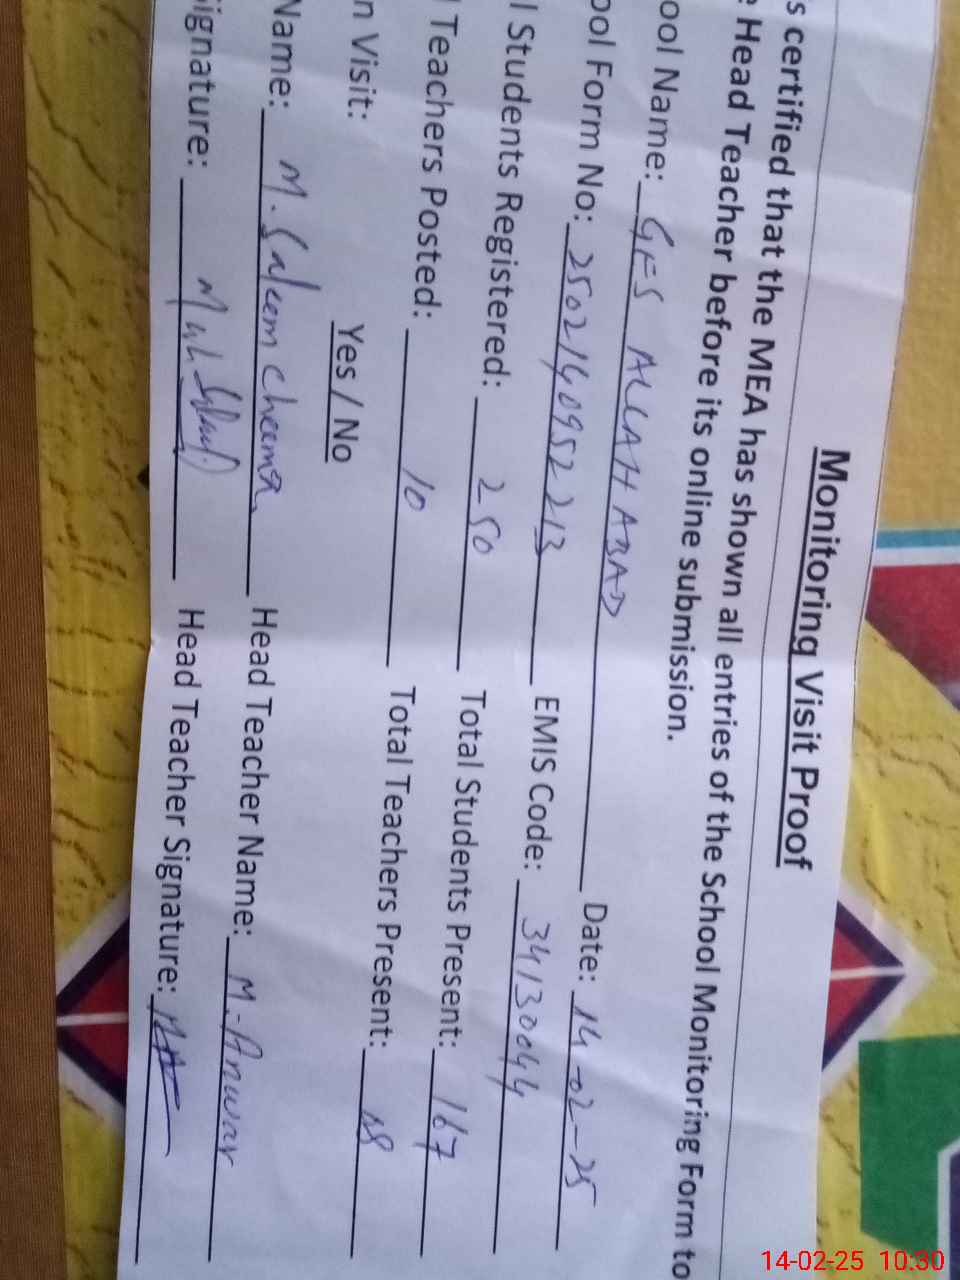 Monitoring Visit Proof
s certified that the MEA has shown all entries of the School Monitoring Form to
Head Teacher before its online submission.
ool Name: GES ALLAH ABAD Date: 14-02-25
ool Form No: 2502140952213 EMIS Code: 34130044
l Students Registered: 250 Total Students Present: 167
l Teachers Posted: 10 Total Teachers Present:
n Visit: Yes / No
Name: M. Saleem Cheema Head Teacher Name: M. Anwar
ignature: Head Teacher Signature:
14-02-25 10:30